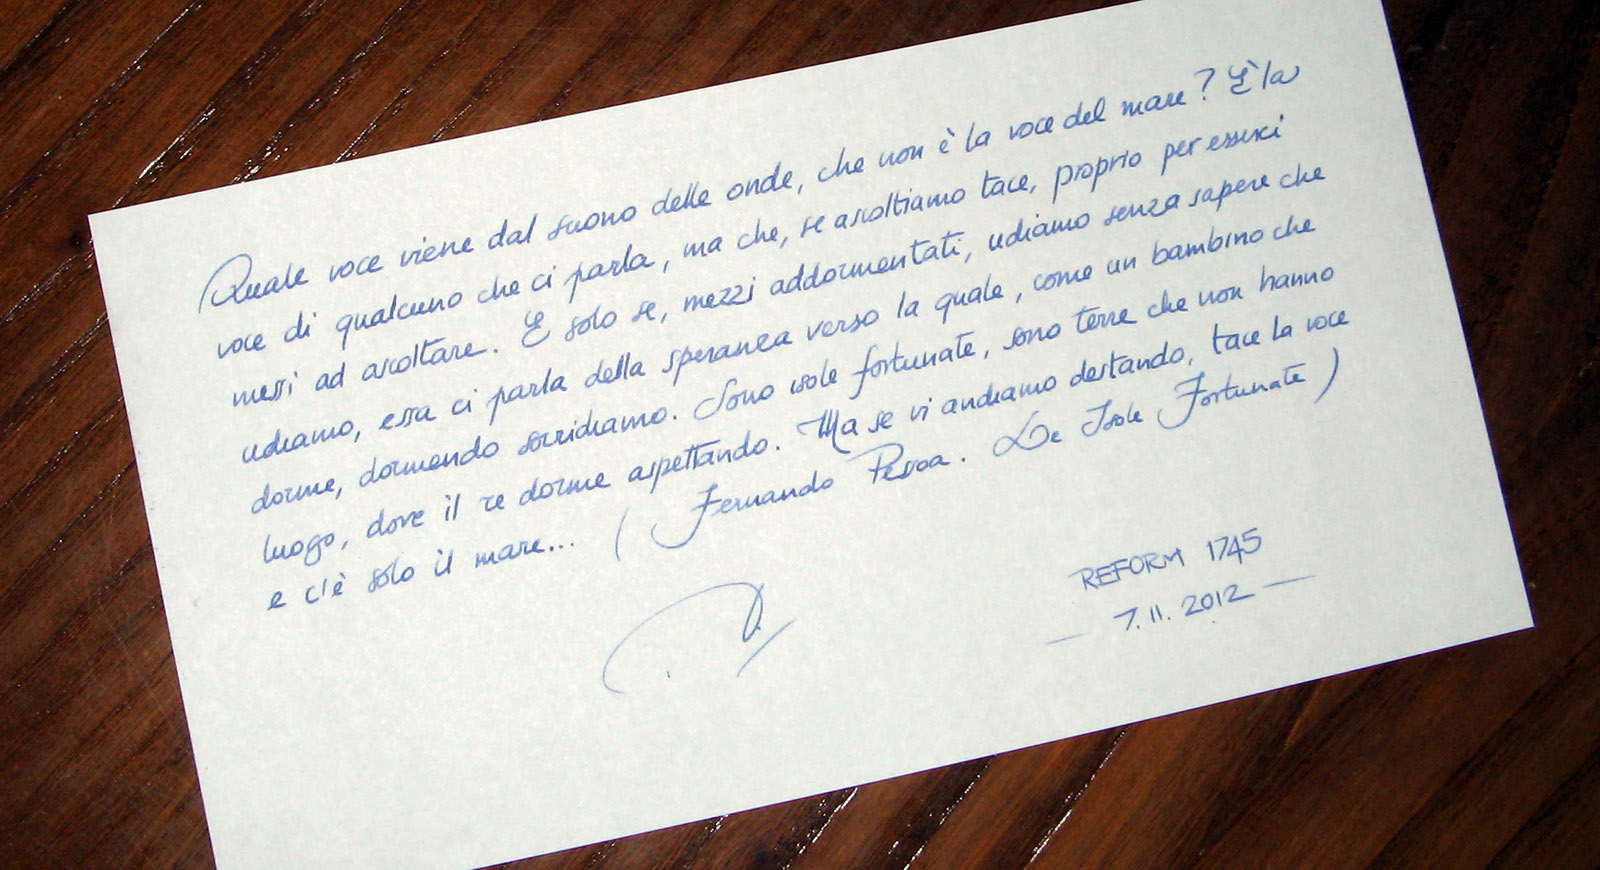 Quale voce viene dal suono delle onde, che non è la voce del mare? È la
voce di qualcuno che ci parla, ma che, se ascoltiamo tace, proprio per esserci
messi ad ascoltare. E solo se, mezzi addormentati, udiamo senza sapere che
udiamo, essa ci parla della speranza verso la quale, come un bambino che
dorme, dormendo sorridiamo. Sono isole fortunate, sono terre che non hanno
luogo, dove il re dorme aspettando. Ma se vi andiamo destando, tace la voce
e c'è solo il mare... (Fernando Pessoa. Le Isole Fortunate)
REFORM 1745
— 7.11.2012 —